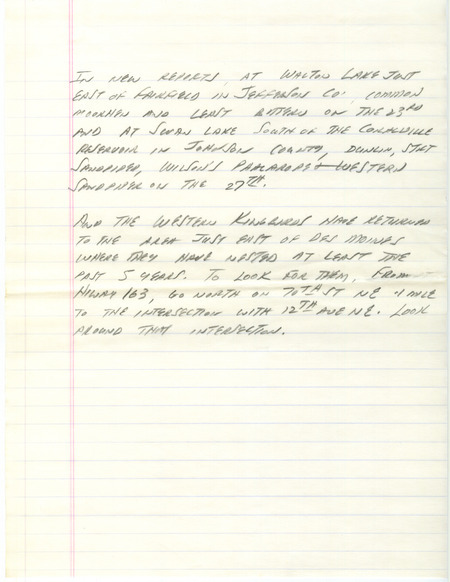 IN NEW REPORTS, AT WALTON LAKE JUST
EAST OF FAIRFIELD IN JEFFERSON CO: COMMON
MOORHEN AND LEAST BITTERN ON THE 23RD
AND AT SWAN LAKE SOUTH OF THE CORALVILLE
RESERVOIR IN JOHNSON COUNTY, DUNLIN, STILT
SANDPIPER, WILSON'S PHALAROPE + WESTERN
SANDPIPER ON THE 27TH.
AND THE WESTERN KINGBIRDS HAVE RETURNED
TO THE AREA JUST EAST OF DES MOINES
WHERE THEY HAVE NESTED AT LEAST THE
PAST 5 YEARS. TO LOOK FOR THEM, FROM
HIWAY 163, GO NORTH ON 70TH ST NE 1 MILE
TO THE INTERSECTION WITH 12TH AVE NE. LOOK
AROUND THAT INTERSECTION.